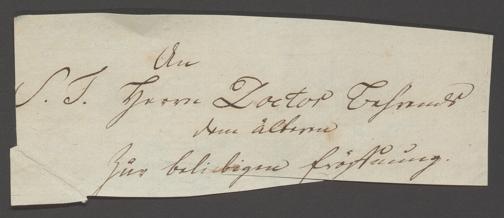 An
S. T. Herrn Doctor Behrends
dem älteren
Zur beliebigen Eröffnung.